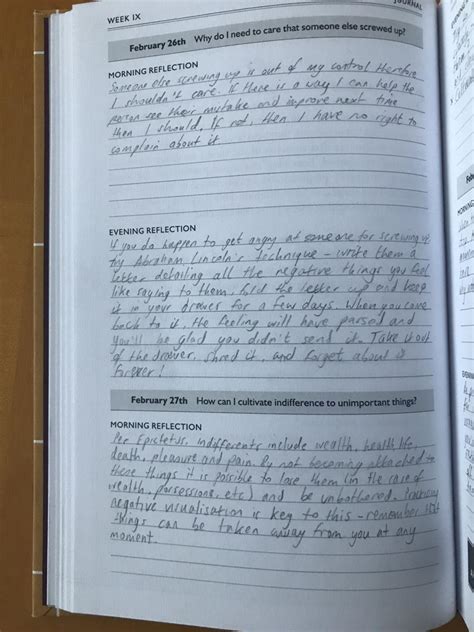 JOURNAL
WEEK IX
February 26th Why do I need to care that someone else screwed up?
MORNING REFLECTION
Someone else screwing up is out of my control therefore
I shouldn't care. If there is a way I can help the
person see their mistake and improve next time
then I should. If not, then I have no right to
complain about it
EVENING REFLECTION
If you do happen to get angry at someone for screwing up,
try Abraham Lincoln's technique - write them a
letter detailing all the negative things you feel
like saying to them, fold the letter up and keep
it in your drawer for a few days. When you come
back to it, the feeling will have passed and
you'll be glad you didn't send it. Take it out
of the drawer, shred it, and forget about it
forever!
February 27th How can I cultivate indifference to unimportant things?
MORNING REFLECTION
Per Epictetus, indifferents include wealth, health, life,
death, pleasure and pain. By not becoming attached to
these things it is possible to lose them (in the case of
wealth, possessions, etc) and be unbothered. Practicing
negative visualisation is key to this - remember that
things can be taken away from you at any
moment.